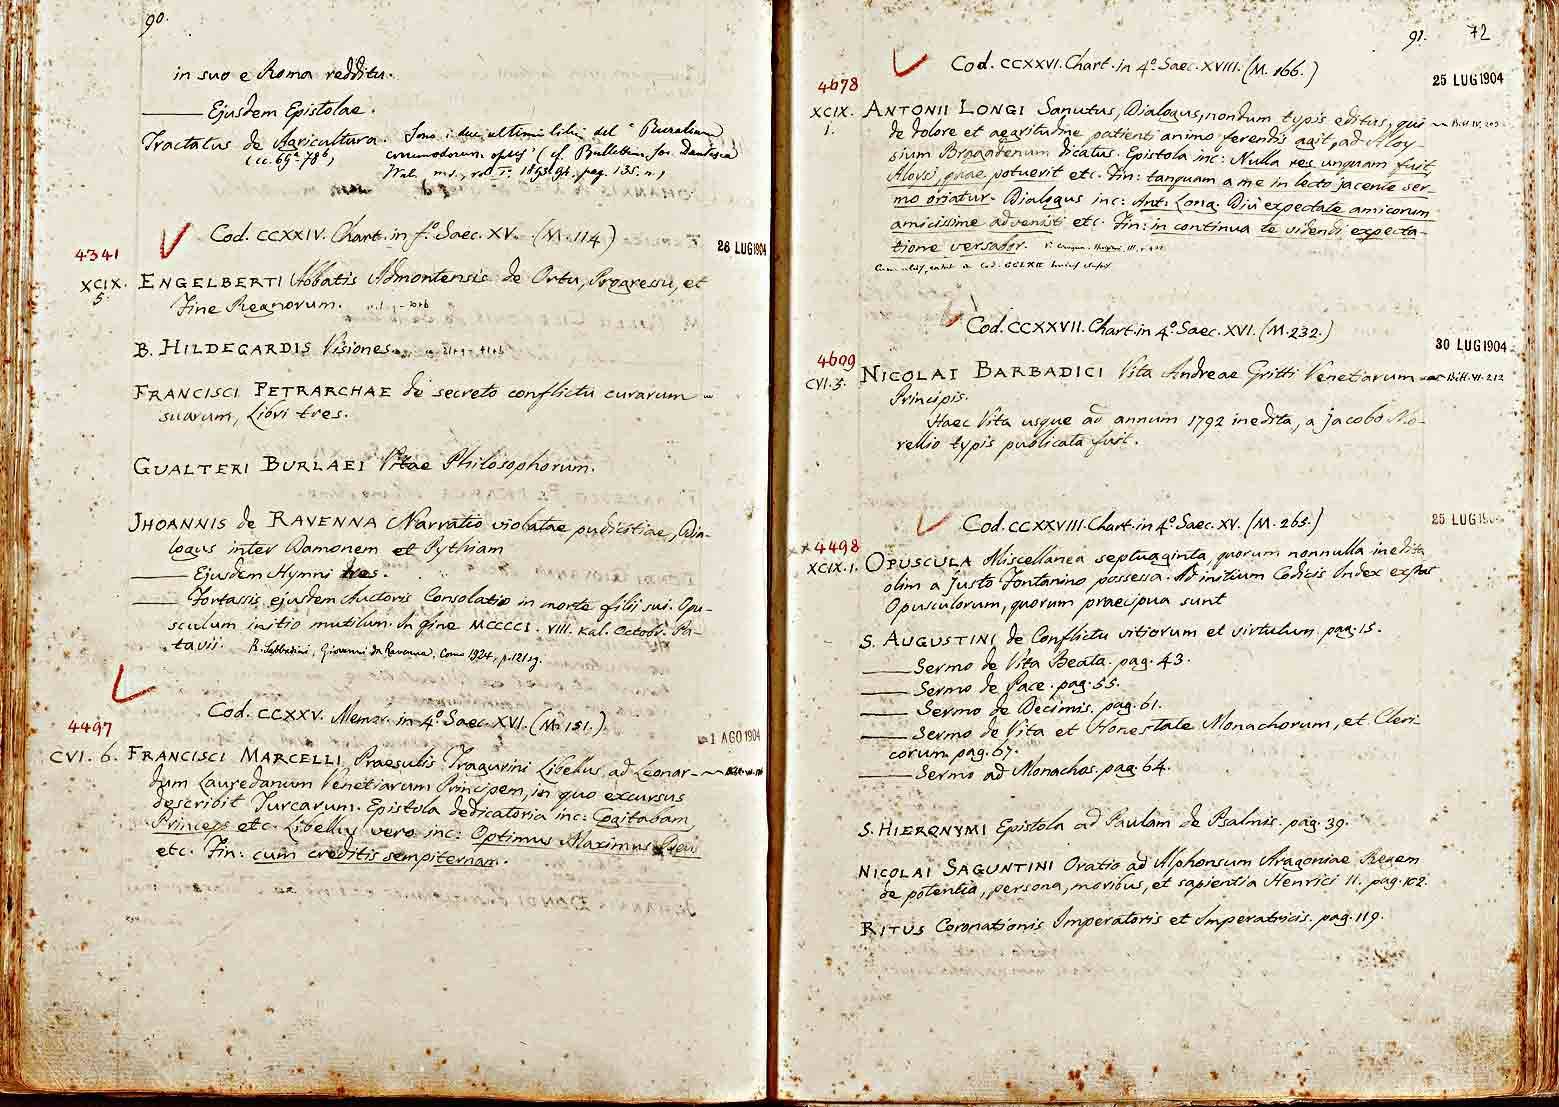 90.
in suo e Roma redditu.
Ejusdem Epistolae.
Tractatus de Agricultura. Sono i due ultimi libri del "Ruralium
(cc. 69ª-78ᵇ) commodorum opus" (cf. Bullettin. Soc. Dantesca
Ital. 1893-94. pag. 135. n.)
Cod. CCXXIV. Chart. in f.º Saec. XV. (M. 114)
26 LUG 1904
4341
XCIX.
5.
ENGELBERTI Abbatis Admontensis de Ortu, Progressu, et
Fine Regnorum.
B. HILDEGARDIS Visiones.
FRANCISCI PETRARCHAE de secreto conflictu curarum
suarum, Libri tres.
GUALTERI BURLAEI Vitae Philosophorum.
JHOANNIS de RAVENNA Narratio violatae pudicitiae, Dia-
logus inter Damonem et Pythiam
Ejusdem Hymni tres.
Fortassis ejusdem Auctoris Consolatio in morte filii sui. Opu-
sculum initio mutilum. In fine MCCCCI. VIII. Kal. Octobr. Pa-
tavii. R. Sabbadini, Giovanni da Ravenna, Como 1924, p. 121 sg.
Cod. CCXXV. Membr. in 4º. Saec. XVI. (M. 151.)
1 AGO 1904
4497
CVI. 6. FRANCISCI MARCELLI Praesulis Tragurini Libellus ad Leonar-
dum Lauredanum Venetiarum Principem, in quo excursus
describit Turcarum. Epistola dedicatoria inc: Cogitabam
Princeps etc. Libellus vero inc: Optimus Maximus Deus
etc. Fin: cum creditis sempiternam.
91. 72
Cod. CCXXVI. Chart. in 4º. Saec. XVIII. (M. 166.)
25 LUG 1904
4678
XCIX.
1.
ANTONII LONGI Sanutus, Dialogus, nondum typis editus, qui
de dolore et aegritudine patienti animo ferendis agit, ad Aloy-
sium Bragadenum dicatus. Epistola inc: Nulla res unquam fuit,
Aloysi, quae potuerit etc. Fin: tanquam a me in lecto jacente ser-
mo oriatur. Dialogus inc: Ant: Long. Diu expectate amicorum
amicissime advenisti etc. Fin: in continua te videndi expecta-
tione versabor.
Cod. CCXXVII. Chart. in 4º. Saec. XVI. (M. 232.)
30 LUG 1904
4609
CVI. 3. NICOLAI BARBADICI Vita Andreae Gritti Venetiarum
Bibl. VI. 212
Principis.
Haec Vita usque ad annum 1792 inedita, a Jacobo Mo-
rellio typis publicata fuit.
Cod. CCXXVIII. Chart. in 4º. Saec. XV. (M. 265.)
25 LUG 1904
4498
XCIX. 1. OPUSCULA Miscellanea septuaginta, quorum nonnulla inedita
olim a Justo Fontanino possessa. Ad initium Codicis Index exstat
Opusculorum, quorum praecipua sunt
S. AUGUSTINI de Conflictu vitiorum et virtutum. pag. 15.
Sermo de Vita Beata. pag. 43.
Sermo de Pace. pag. 55.
Sermo de Decimis. pag. 61.
Sermo de Vita et Honestate Monachorum, et Cleri-
corum. pag. 67.
Sermo ad Monachos. pag. 64.
S. HIERONYMI Epistola ad Paulam de Psalmis. pag. 39.
NICOLAI SAGUNTINI Oratio ad Alphonsum Aragoniae Regem
de potentia, persona, moribus, et sapientia Henrici II. pag. 102.
RITUS Coronationis Imperatoris et Imperatricis. pag. 119.